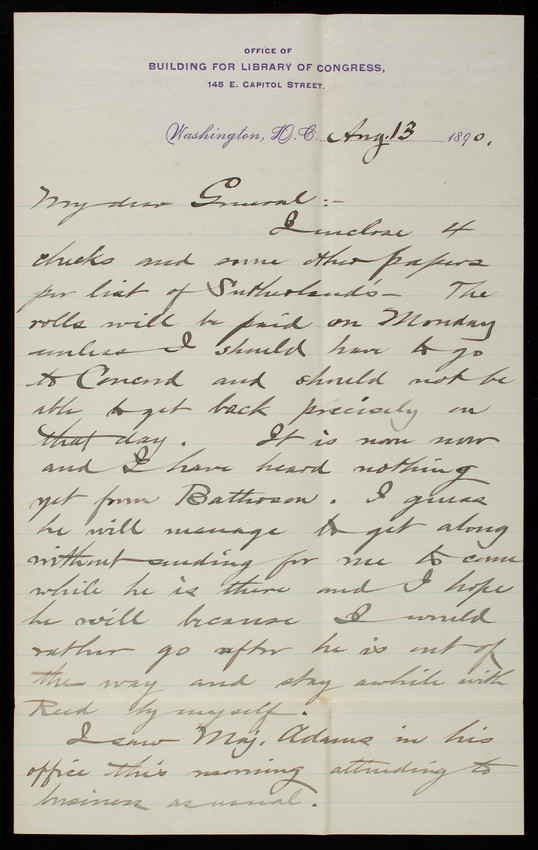 OFFICE OF
BUILDING FOR LIBRARY OF CONGRESS,
145 E. CAPITOL STREET.
Washington, D. C. Aug. 13 1890.
My dear General:-
I inclose 4
checks and some other papers
per list of Sutherland's - The
rolls will be paid on Monday
unless I should have to go
to Concord and should not be
able to get back precisely on
that day. It is noon now
and I have heard nothing
yet from Batterson. I guess
he will manage to get along
without sending for me to come
while he is there and I hope
he will because I would
rather go after he is out of
the way and stay awhile with
Reed by myself.
I saw Maj. Adams in his
office this morning attending to
business as usual.